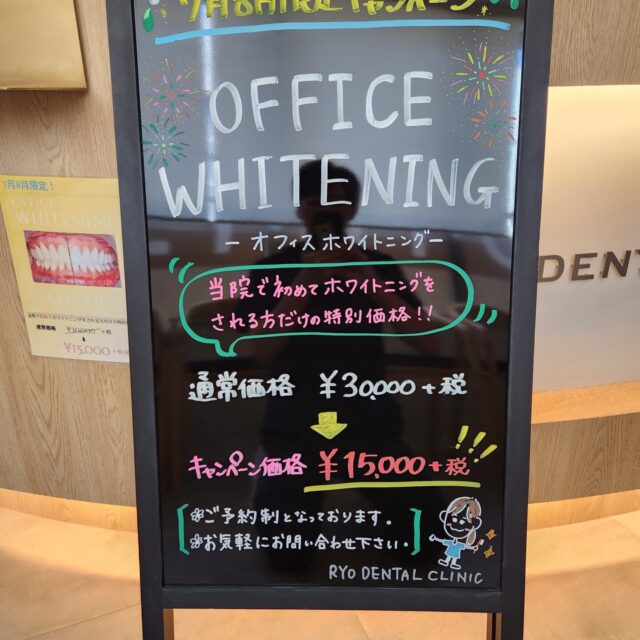 7月8月限定キャンペーン
OFFICE
WHITENING
ー オフィス ホワイトニング ー
当院で初めてホワイトニングを
される方だけの特別価格!!
通常価格 ¥30,000+税
キャンペーン価格 ¥15,000+税 !!!
❀ご予約制となっております。
❀お気軽にお問い合わせ下さい。
RYO DENTAL CLINIC
7月8月限定!
OFFICE
WHITENING
通常価格 ¥30,000 +税
¥15,000
DENT